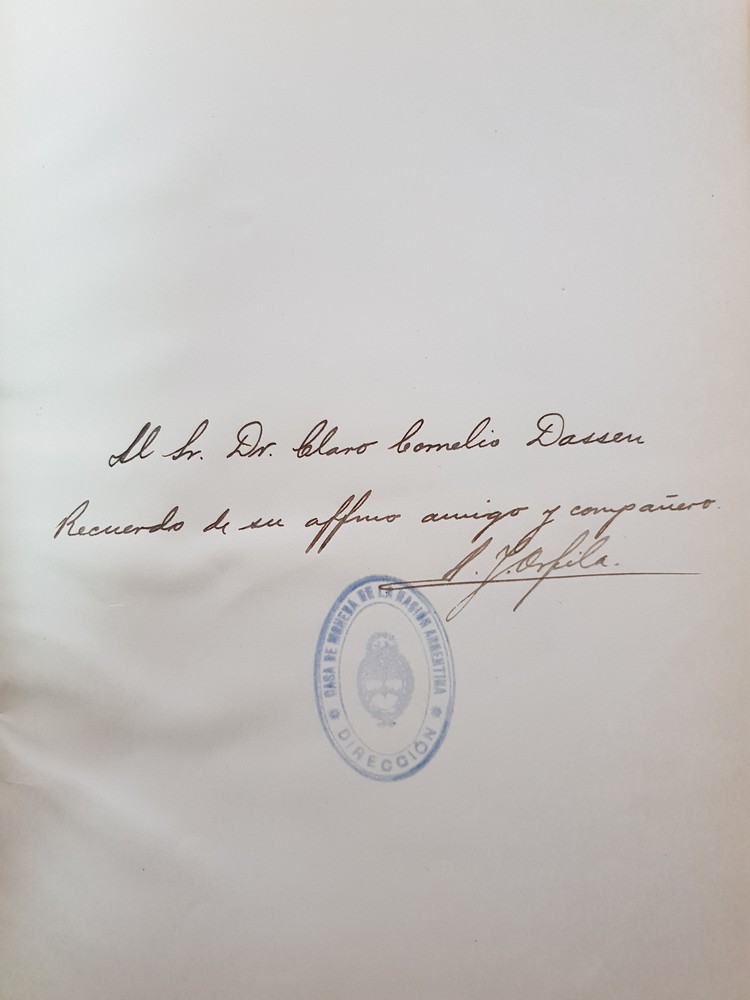 Al Sr. Dr. Claro Cornelio Dassen
Recuerdo de su affmo amigo y compañero.
A. J. Orfila.
CASA DE MONEDA DE LA NACIÓN ARGENTINA
DIRECCIÓN